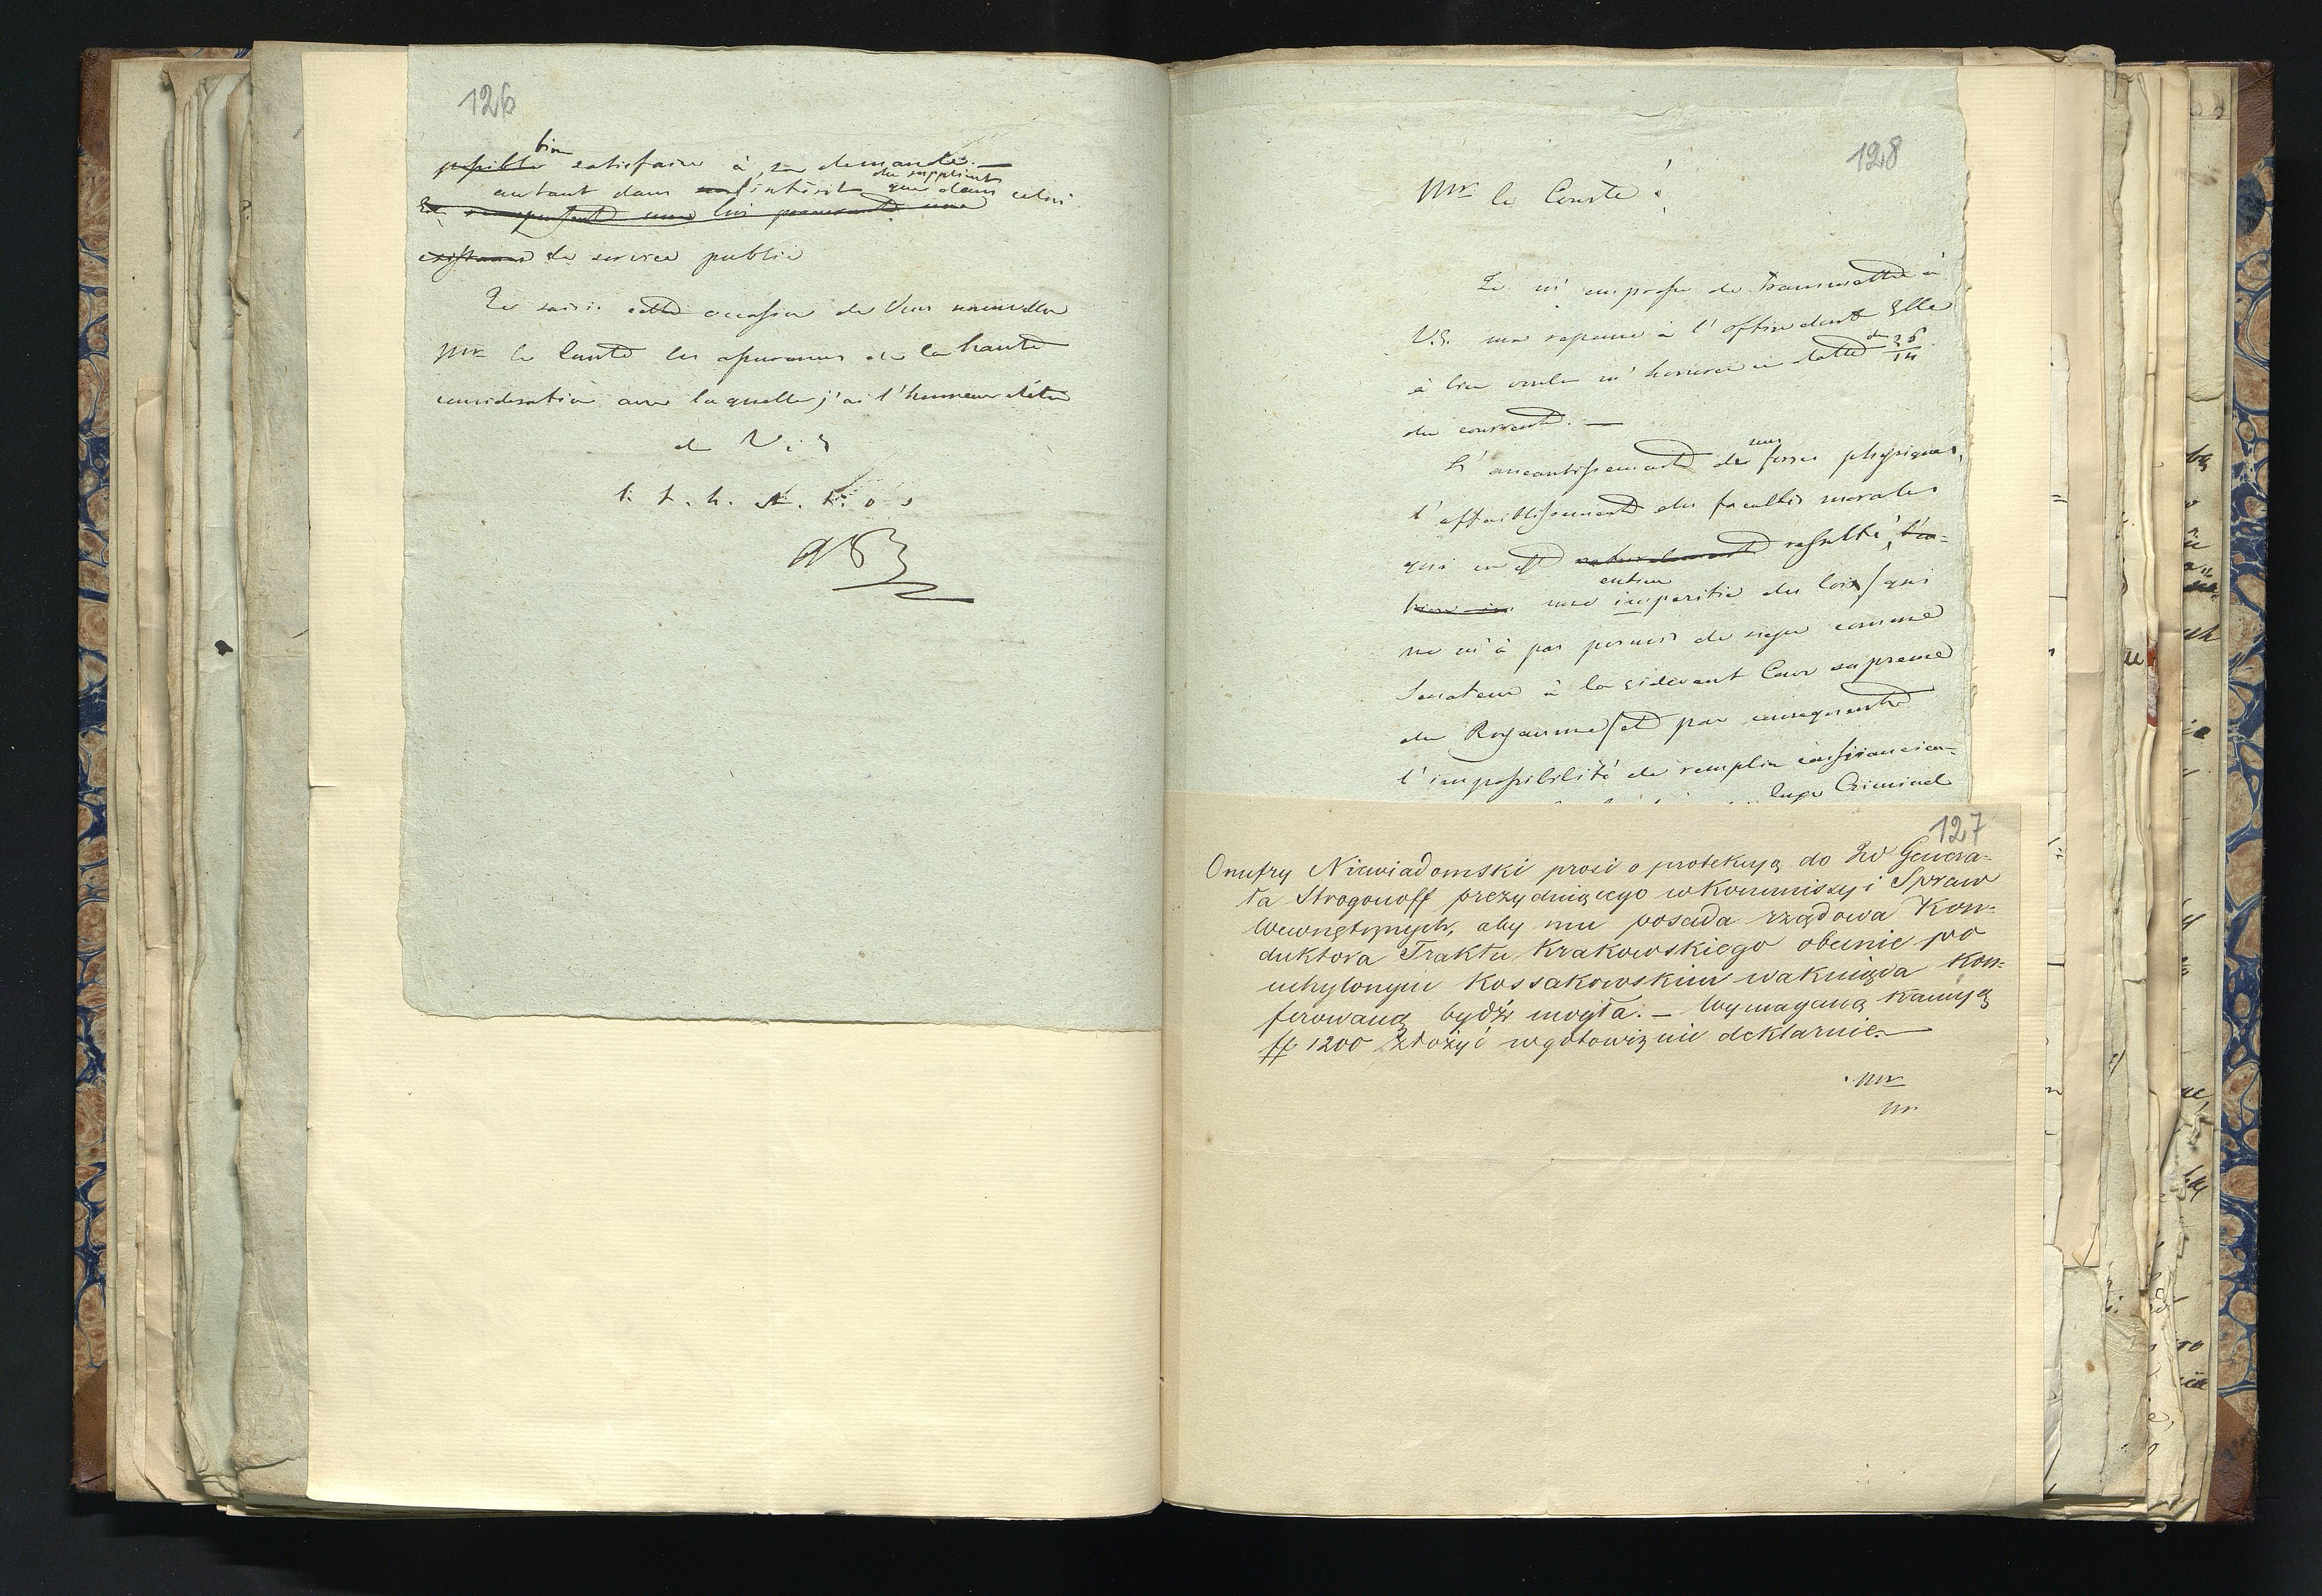 126
bien
possible satisfaire à sa demande. —
du suppliant
autant dans l'intérêt que dans celui
une loi
de service public
Je saisis cette occasion de Vous renouveller
Mr le Comte les assurances de la haute
consideration avec laquelle j'ai l'honneur d'être
de V. E
t. h. t. o. s
128
Mr le Comte!
Je m'empresse de transmettre à
V.E. ma reponse à l'office dont Elle
à bien voulu m'honorer en datte du 26/14
du courrant. —
L'aneantissement de mes forses physiques,
l'affaiblissement des facultés morales
qui en est naturellement resulté,
entiere
une imperitie des loix / qui
ne m'à pas permis de sieger comme
Senateur à la cidevant Cour supreme
du Royaume / et par consequent
l'impossibilité de remplir consciencieu-
Juge Criminel
127
Onufry Niewiadomski prosi o protekcyą do JW Genera-
ła Strogonoff prezyduiącego w Kommissyi Spraw
Wewnętrznych, aby mu posada rządowa Kon-
duktora Traktu Krakowskiego obecnie po
uchylonym Kossakowskim wakuiąca kon-
ferowaną bydź mogła. — Wymaganą kaucyą
ff 1200 złożyć w gotowiznie deklaruie. —